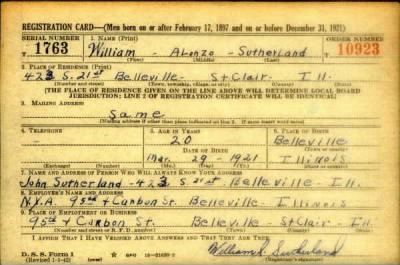 REGISTRATION CARD—(Men born on or after February 17, 1897 and on or before December 31, 1921)
SERIAL NUMBER 1. NAME (Print) ORDER NUMBER
U 1763 William - Alonzo - Sutherland 10923
2. PLACE OF RESIDENCE (Print)
423 S. 21st Belleville - St Clair - Ill.
(THE PLACE OF RESIDENCE GIVEN ON THE LINE ABOVE WILL DETERMINE LOCAL BOARD
JURISDICTION; LINE 2 OF REGISTRATION CERTIFICATE WILL BE IDENTICAL)
3. MAILING ADDRESS
Same
(Mailing address if other than place indicated on line 2. If same insert word same)
4. TELEPHONE 5. AGE IN YEARS 6. PLACE OF BIRTH
20 Belleville
DATE OF BIRTH (Town or county)
Mar. 29 - 1921 Illinois
(Exchange) (Number) (Mo.) (Day) (Yr.) (State or country)
7. NAME AND ADDRESS OF PERSON WHO WILL ALWAYS KNOW YOUR ADDRESS
John Sutherland - 423 S 21st - Belleville - Ill.
8. EMPLOYER'S NAME AND ADDRESS
N.Y.A. 95th + Carbon St. Belleville - Illinois
9. PLACE OF EMPLOYMENT OR BUSINESS
95th + Carbon St. Belleville - St Clair - Ill.
(Number and street or R. F. D. number) (Town) (County) (State)
I AFFIRM THAT I HAVE VERIFIED ABOVE ANSWERS AND THAT THEY ARE TRUE.
D. S. S. Form 1
(Revised 1-1-42) GPO William A. Sutherland